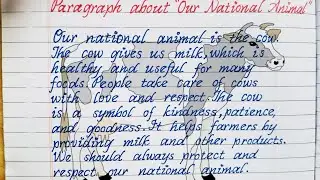 Paragraph about "Our National Animal"
Our national animal is the cow.
The cow gives us milk, which is
healthy and useful for many
foods. People take care of cows
with love and respect. The cow
is a symbol of kindness, patience,
and goodness. It helps farmers by
providing milk and other products.
We should always protect and
respect our national animal.